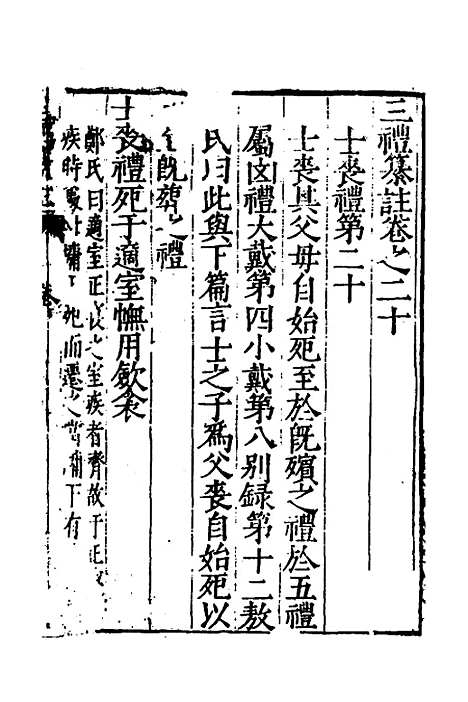 三禮纂註卷之二十
士喪禮第二十
士喪其父母自始死至於旣殯之禮於五禮
屬凶禮大戴第四小戴第八別録第十二敖
氏曰此與下篇言士之子爲父喪自始死以
至旣葬之禮
士喪禮死于適室幠用斂衾
鄭氏曰適室正寢之室疾者齊故于正寢
疾時處北墉下死而遷之當牖下有